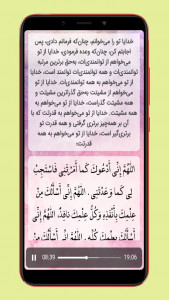 خدایا تو را می‌خوانم، چنان‌که فرمانم دادی، پس
اجابتم کن، چنان‌که وعده فرمودی، خدایا از تو
می‌خواهم از توانمندی‌ات، به‌حق برترین مرتبه
توانمندی‌ات و همه توانمندی‌ات توانمند است، خدایا
از تو می‌خواهم به همه توانمندی‌ات، خدایا از تو
می‌خواهم از مشیّتت به‌حق گذراترین مشیّتت و
همه مشیّتت گذراست، خدایا از تو می‌خواهم به
همه مشیّتت، خدایا از تو می‌خواهم به قدرتت که با
آن بر همه‌چیز برتری گرفتی و همه قدرتت تو
برتری‌گیر است، خدایا از تو می‌خواهم به همه
قدرتت؛
اللَّهُمَّ إِنِّي أَدْعُوكَ كَمَا أَمَرْتَنِي فَاسْتَجِبْ
لِي كَمَا وَعَدْتَنِي . اللَّهُمَّ إِنِّي أَسْأَلُكَ مِنْ
عِلْمِكَ بِأَنْفَذِهِ وَكُلُّ عِلْمِكَ نَافِذٌ، اللَّهُمَّ إِنِّي
أَسْأَلُكَ بِعِلْمِكَ كُلِّهِ . اللَّهُمَّ إِنِّي أَسْأَلُكَ مِنْ
08:39
19:06